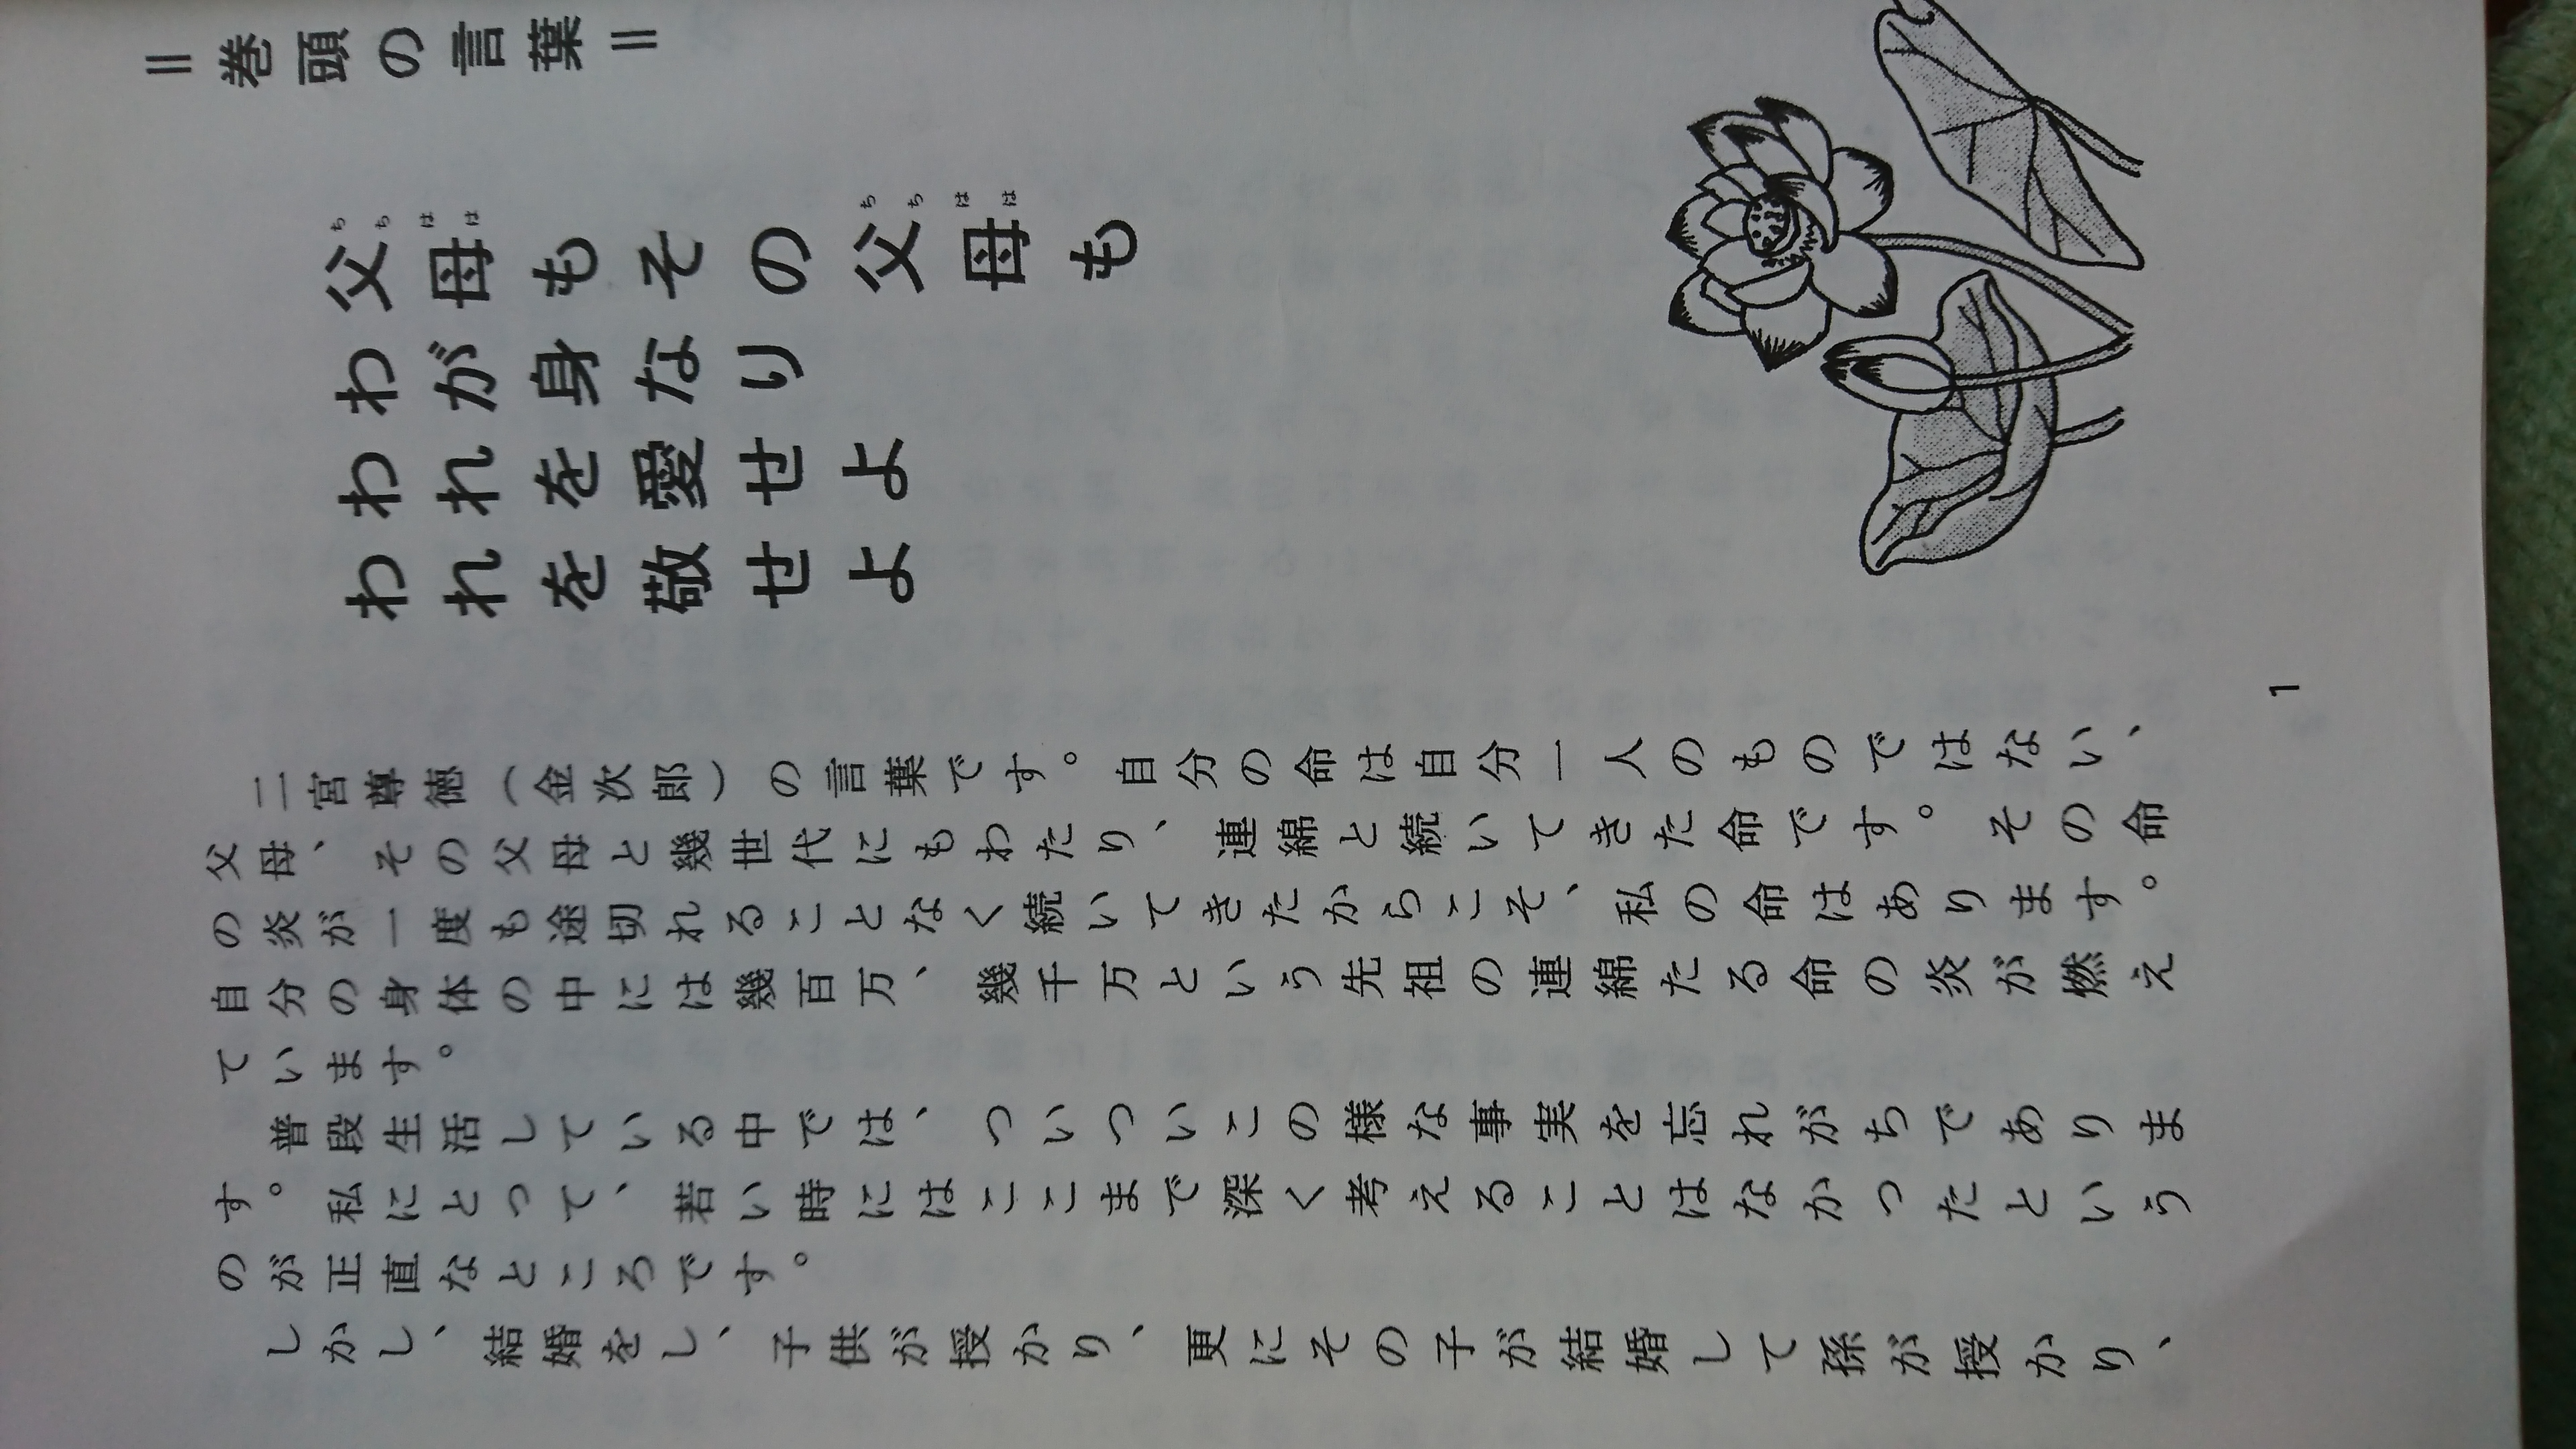 ＝巻頭の言葉＝
父母もその父母も
ちち はは ちち はは
わが身なり
われを愛せよ
われを敬せよ
二宮尊徳（金次郎）の言葉です。自分の命は自分一人のものではない、
父母、その父母と幾世代にもわたり、連綿と続いてきた命です。その命
の炎が一度も途切れることなく続いてきたからこそ、私の命はあります。
自分の身体の中には幾百万、幾千万という先祖の連綿たる命の炎が燃え
ています。
普段生活している中では、ついついこの様な事実を忘れがちでありま
す。私にとって、若い時にはここまで深く考えることはなかったという
のが正直なところです。
しかし、結婚をし、子供が授かり、更にその子が結婚して孫が授かり、
1